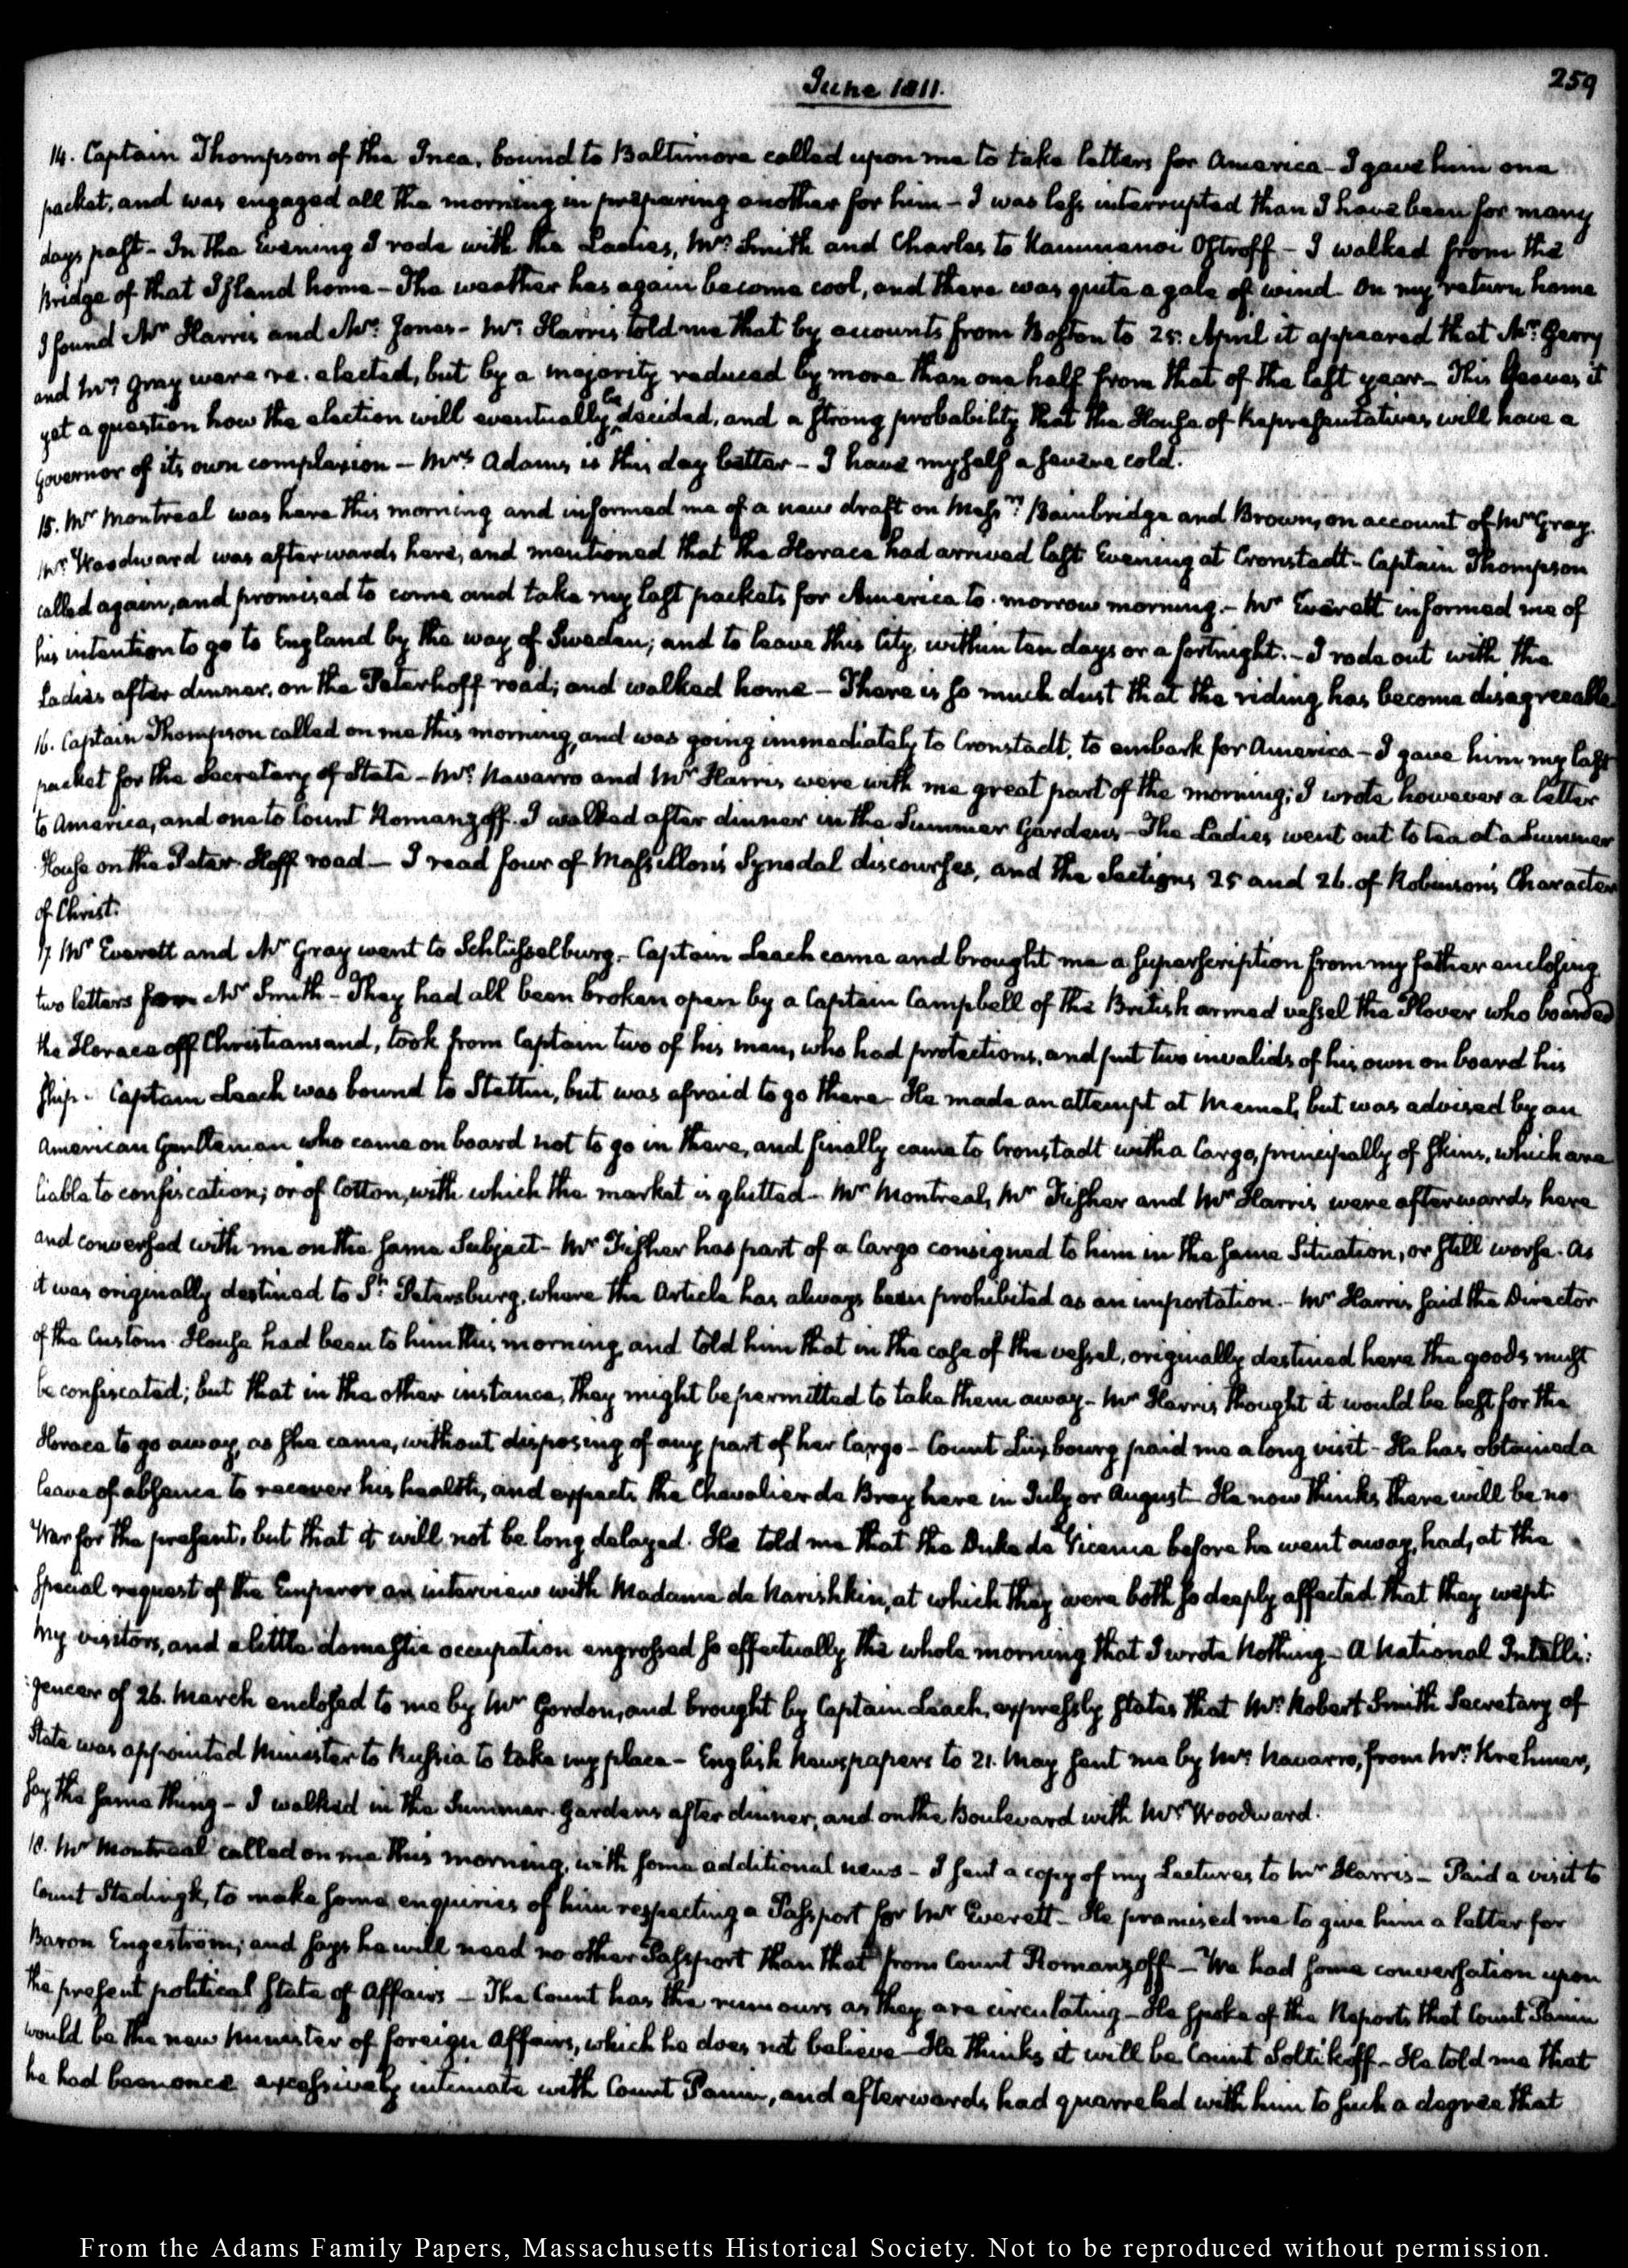 June 1811.
259
14. Captain Thompson of the Inca, bound to Baltimore called upon me to take letters for America – I gave him one
packet, and was engaged all the morning in preparing another for him – I was less interrupted than I have been for many
days past – In the Evening I rode with the Ladies, Mr. Smith and Charles to Kammenoi Ostroff – I walked from the
Bridge of that Island home – The weather has again become cool, and there was quite a gale of wind. On my return home
I found Mr Harris and Mr. Jones – Mr. Harris told me that by accounts from Boston to 25. April it appeared that Mr. Gerry
and Mr. Gray were re-elected, but by a majority reduced by more than one half from that of the last year – This leaves it
yet a question how the election will eventually be decided, and a strong probability that the House of Representatives will have a
Governor of its own complexion – Mrs. Adams is this day better – I have myself a severe cold.
15. Mr Montreal was here this morning and informed me of a new draft on Messrs. Bainbridge and Brown, on account of Mr Gray.
Mr. Woodward was afterwards here, and mentioned that the Horace had arrived last Evening at Cronstadt – Captain Thompson
called again, and promised to come and take my last packets for America to-morrow morning. – Mr Everett informed me of
his intention to go to England by the way of Sweden; and to leave this City within ten days or a fortnight. – I rode out with the
Ladies after dinner, on the Peterhoff road; and walked home – There is so much dust that the riding has become disagreeable.
16. Captain Thompson called on me this morning, and was going immediately to Cronstadt, to embark for America – I gave him my last
packet for the Secretary of State – Mr. Navarro and Mr Harris were with me great part of the morning; I wrote however a letter
to America, and one to Count Romanzoff. I walked after dinner in the Summer Gardens – The Ladies went out to tea at a Summer
House on the Peter-Hoff road – I read four of Massillon's Synodal discourses, and the Sections 25 and 26. of Robinson's Character
of Christ.
17. Mr Everett and Mr Gray went to Schlüsselburg. – Captain Leach came and brought me a superscription from my father enclosing
two letters from Mr Smith – They had all been broken open by a Captain Campbell of the British armed vessel the Plover who boarded
the Horace off Christiansand, took from Captain two of his men, who had protections, and put two invalids of his own on board his
ship. Captain Leach was bound to Stettin, but was afraid to go there – He made an attempt at Memel, but was advised by an
American Gentleman who came on board not to go in there, and finally came to Cronstadt with a Cargo, principally of skins, which are
liable to confiscation; or of Cotton, with which the market is glutted – Mr Montreal, Mr Fisher and Mr Harris were afterwards here
and conversed with me on the same Subject – Mr Fisher has part of a Cargo consigned to him in the same Situation, or still worse. As
it was originally destined to St. Petersburg, where the Article has always been prohibited as an importation. – Mr Harris said the Director
of the Custom-House had been to him this morning and told him that in the case of the vessel, originally destined here the goods must
be confiscated; but that in the other instance, they might be permitted to take them away – Mr Harris thought it would be best for the
Horace to go away, as she came, without disposing of any part of her Cargo – Count Luxbourg paid me a long visit – He has obtained a
leave of absence to recover his health, and expects the Chevalier de Bray here in July or August – He now thinks there will be no
War for the present, but that it will not be long delayed. He told me that the Duke de Vicence before he went away, had, at the
special request of the Emperor an interview with Madame de Narishkin, at which they were both so deeply affected that they wept.
My visitors, and a little domestic occupation engrossed so effectually the whole morning that I wrote Nothing – A National Intelli:
:gencer of 26. March enclosed to me by Mr Gordon, and brought by Captain Leach, expressly states that Mr. Robert Smith Secretary of
State was appointed Minister to Russia to take my place – English Newspapers to 21. May sent me by Mr. Navarro, from Mr. Krehmer,
say the same thing – I walked in the Summer-Gardens after dinner, and on the Boulevard with Mr Woodward.
18. Mr Montreal called on me this morning, with some additional news – I sent a copy of my Lectures to Mr Harris – Paid a visit to
Count Stedingk, to make some enquiries of him respecting a Passport for Mr Everett – He promised me to give him a letter for
Baron Engeström; and says he will need no other Passport than that from Count Romanzoff – We had some conversation upon
the present political State of Affairs – The Count has the rumours as they are circulating – He spoke of the Reports that Count Panin
would be the new Minister of foreign Affairs, which he does not believe – He thinks it will be Count Soltikoff – He told me that
he had been once excessively intimate with Count Panin, and afterwards had quarreled with him to such a degree that
From the Adams Family Papers, Massachusetts Historical Society. Not to be reproduced without permission.